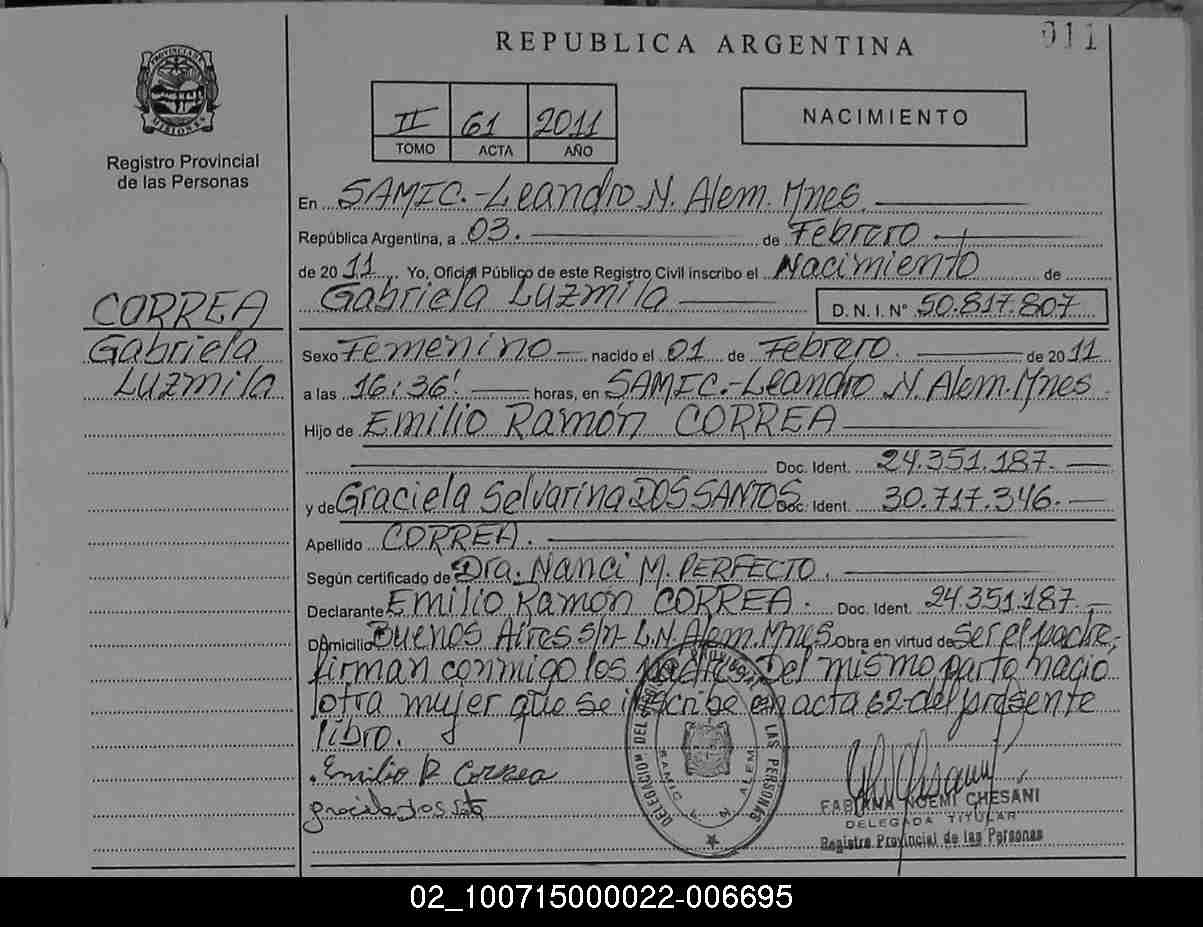 REPUBLICA ARGENTINA
011
PROVINCIA DE MISIONES
Registro Provincial
de las Personas
II 61 2011
TOMO ACTA AÑO
NACIMIENTO
En SAMIC.-Leandro N. Alem. Mnes.
República Argentina, a 03. de Febrero
de 2011 Yo, Oficial Público de este Registro Civil inscribo el Nacimiento de
Gabriela Luzmila D.N.I.Nº 50.817.807
CORREA
Gabriela
Luzmila
Sexo Femenino nacido el 01 de Febrero. de 2011
a las 16:36' horas, en SAMIC.-Leandro N. Alem.Mnes.
Hijo de Emilio Ramón CORREA
Doc. Ident. 24.351.187.
y de Graciela Selvarina DOS SANTOS Doc. Ident. 30.717.346.
Apellido CORREA.
Según certificado de Dra. Nanci M. PERFECTO.
Declarante Emilio Ramón CORREA. Doc. Ident. 24.351.187.
Domicilio Buenos Aires s/n- L.N. Alem. Mnes. Obra en virtud de ser el padre,
firman conmigo los padres. Del mismo parto nació
otra mujer que se inscribe en acta 62-del presente
libro.
Emilio R Correa
FABIANA NOEMI CHESANI
DELEGADA TITULAR
Registro Provincial de las Personas
02_100715000022-006695